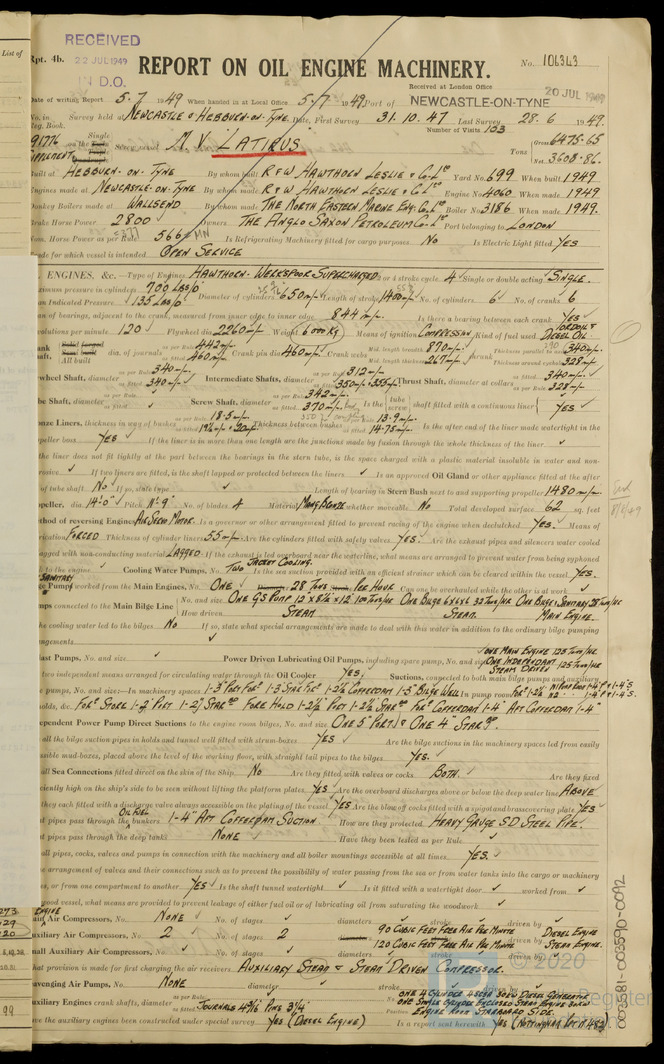 List of
RECEIVED
22 JUL 1949
IN D.O.
Rpt. 4b.
REPORT ON OIL ENGINE MACHINERY.
No. 106343
Received at London Office
20 JUL 1949
Date of writing Report 5.7 1949 When handed in at Local Office 5.7 1949 Port of NEWCASTLE-ON-TYNE
No. in Survey held at NEWCASTLE & HEBBURN-ON-TYNE. Date, First Survey 31.10.47 Last Survey 28.6 1949.
Reg. Book. Number of Visits 103
91776 on the Single Screw vessel M.V. LATIRUS Tons Gross 6475.65
Net 3608.86.
Built at HEBBURN-ON-TYNE By whom built R & W HAWTHORN LESLIE & Co Ltd Yard No. 699 When built 1949
Engines made at NEWCASTLE-ON-TYNE By whom made R & W HAWTHORN LESLIE & Co Ltd Engine No. 4060 When made 1949
Donkey Boilers made at WALLSEND By whom made THE NORTH EASTERN MARINE ENG. Co Ltd Boiler No. 3186 When made 1949.
Brake Horse Power 2800 Owners THE ANGLO SAXON PETROLEUM Co Ltd Port belonging to LONDON
Nom. Horse Power as per Rule 566 MN Is Refrigerating Machinery fitted for cargo purposes No Is Electric Light fitted YES
Trade for which vessel is intended OPEN SERVICE
ENGINES, &c. Type of Engines HAWTHORN-WERKSPOOR SUPERCHARGED 2 or 4 stroke cycle 4 Single or double acting SINGLE.
Maximum pressure in cylinders 700 LBS/□" Diameter of cylinders 650 m/m Length of stroke 1400 m/m No. of cylinders 6 No. of cranks 6
Mean Indicated Pressure 135 LBS/□"
of bearings, adjacent to the crank, measured from inner edge to inner edge 844 m/m Is there a bearing between each crank YES
Revolutions per minute 120 Flywheel dia. 2260 m/m Weight 6000 KG Means of ignition COMPRESSION Kind of fuel used DIESEL OIL
dia. of journals as per Rule 442 m/m as fitted 460 m/m Crank pin dia. 460 m/m Crank webs Mid. length breadth 870 m/m Mid. length thickness 267 m/m shrunk Thickness parallel to axis 340 m/m Thickness around eyehole 328 m/m
Flywheel Shaft, diameter as per Rule 340 m/m as fitted 340 m/m Intermediate Shafts, diameter as per Rule 312 m/m as fitted 350 m/m & 355 m/m Thrust Shaft, diameter at collars as per Rule 340 m/m as fitted 328 m/m
Tube Shaft, diameter Screw Shaft, diameter as per Rule 342 m/m as fitted 370 m/m Is the tube screw shaft fitted with a continuous liner YES
Bronze Liners, thickness in way of bushes as per Rule 18.5 m/m Thickness between bushes as per Rule 13.9 m/m as fitted 14.75 m/m Is the after end of the liner made watertight in the
propeller boss YES If the liner is in more than one length are the junctions made by fusion through the whole length of the liner
If the liner does not fit tightly at the part between the bearings in the stern tube, is the space charged with a plastic material insoluble in water and non-
corrosive If two liners are fitted, is the shaft lapped or protected between the liners Is an approved Oil Gland or other appliance fitted at the after
end of tube shaft No If so, state type Length of bearing in Stern Bush next to and supporting propeller 1480 m/m
Propeller, dia. 14'-0" Pitch 11'-9" No. of blades 4 Material MANG BRONZE whether moveable No Total developed surface 62 sq. feet
Method of reversing Engines AIR SERVO MOTOR. Is a governor or other arrangement fitted to prevent racing of the engine when declutched YES. Means of
lubrication FORCED Thickness of cylinder liners 55 m/m Are the cylinders fitted with safety valves YES. Are the exhaust pipes and silencers water cooled
or lagged with non-conducting material LAGGED If the exhaust is led overboard near the waterline, what means are arranged to prevent water from being syphoned
back to the engine Cooling Water Pumps, No. TWO JACKET COOLING. Is the sea suction provided with an efficient strainer which can be cleared within the vessel YES.
SANITARY Pump worked from the Main Engines, No. ONE 28 TONS PER HOUR Can one be overhauled while the other is at work
Pumps connected to the Main Bilge Line No. and size ONE GS PUMP 12" x 8½" x 12" 100 TONS/HR ONE BILGE 6x6x6 32 TONS/HR ONE BILGE & SANITARY 28 TONS/HR
How driven STEAM STEAM. MAIN ENGINE.
Is the cooling water led to the bilges No If so, state what special arrangements are made to deal with this water in addition to the ordinary bilge pumping
arrangements
Ballast Pumps, No. and size Power Driven Lubricating Oil Pumps, including spare pump, No. and size ONE MAIN ENGINE 125 TONS/HR ONE INDEPENDANT STEAM DRIVEN 125 TONS/HR
Are two independent means arranged for circulating water through the Oil Cooler YES, Suctions, connected to both main bilge pumps and auxiliary
bilge pumps, No. and size:—In machinery spaces 1-3" PORT FORD 1-3" STAR FORD 1-2½ COFFERDAM 1-5" BILGE WELL In pump room
holds, &c. FORD STORE 1-2" PORT 1-2" STARBD FORE HOLD 1-2½" PORT 1-2½" STARBD FORD COFFERDAM 1-4" AFT COFFERDAM 1-4"
Independent Power Pump Direct Suctions to the engine room bilges, No. and size ONE 5" PORT & ONE 4" STARBD.
Are all the bilge suction pipes in holds and tunnel well fitted with strum-boxes YES Are the bilge suctions in the machinery spaces led from easily
accessible mud-boxes, placed above the level of the working floor, with straight tail pipes to the bilges YES.
Are all Sea Connections fitted direct on the skin of the Ship. No Are they fitted with valves or cocks BOTH. Are they fixed
sufficiently high on the ship's side to be seen without lifting the platform plates. YES Are the overboard discharges above or below the deep water line ABOVE
Are they each fitted with a discharge valve always accessible on the plating of the vessel YES Are the blow off cocks fitted with a spigot and brass covering plate YES
What pipes pass through the OIL FUEL bunkers 1-4" AFT COFFERDAM SUCTION How are they protected HEAVY GAUGE S.D STEEL PIPE.
What pipes pass through the deep tanks NONE Have they been tested as per Rule
Are all pipes, cocks, valves and pumps in connection with the machinery and all boiler mountings accessible at all times YES.
Is the arrangement of valves and their connections such as to prevent the possibility of water passing from the sea or from water tanks into the cargo or machinery
spaces, or from one compartment to another YES Is the shaft tunnel watertight Is it fitted with a watertight door worked from
If a wood vessel, what means are provided to prevent leakage of either fuel oil or of lubricating oil from saturating the woodwork
Main Air Compressors, No. NONE No. of stages diameters stroke driven by
Auxiliary Air Compressors, No. 2 No. of stages 2 90 CUBIC FEET FREE AIR PER MINUTE driven by DIESEL ENGINE
120 CUBIC FEET FREE AIR PER MINUTE STEAM ENGINE.
Small Auxiliary Air Compressors, No. No. of stages diameters stroke driven by
What provision is made for first charging the air receivers AUXILIARY STEAM & STEAM DRIVEN COMPRESSOR.
Scavenging Air Pumps, No. NONE diameter stroke
ONE 4 CYLINDER 4SCSA 30KW DIESEL GENERATOR
ONE SINGLE CYLINDER ENCLOSED STEAM ENGINE 30KW
Auxiliary Engines crank shafts, diameter as per Rule as fitted JOURNALS PINS 3¼" Position ENGINE ROOM STARBOARD SIDE.
Have the auxiliary engines been constructed under special survey YES (DIESEL ENGINE) Is a report sent herewith YES
© 2020
003581-003590-0092